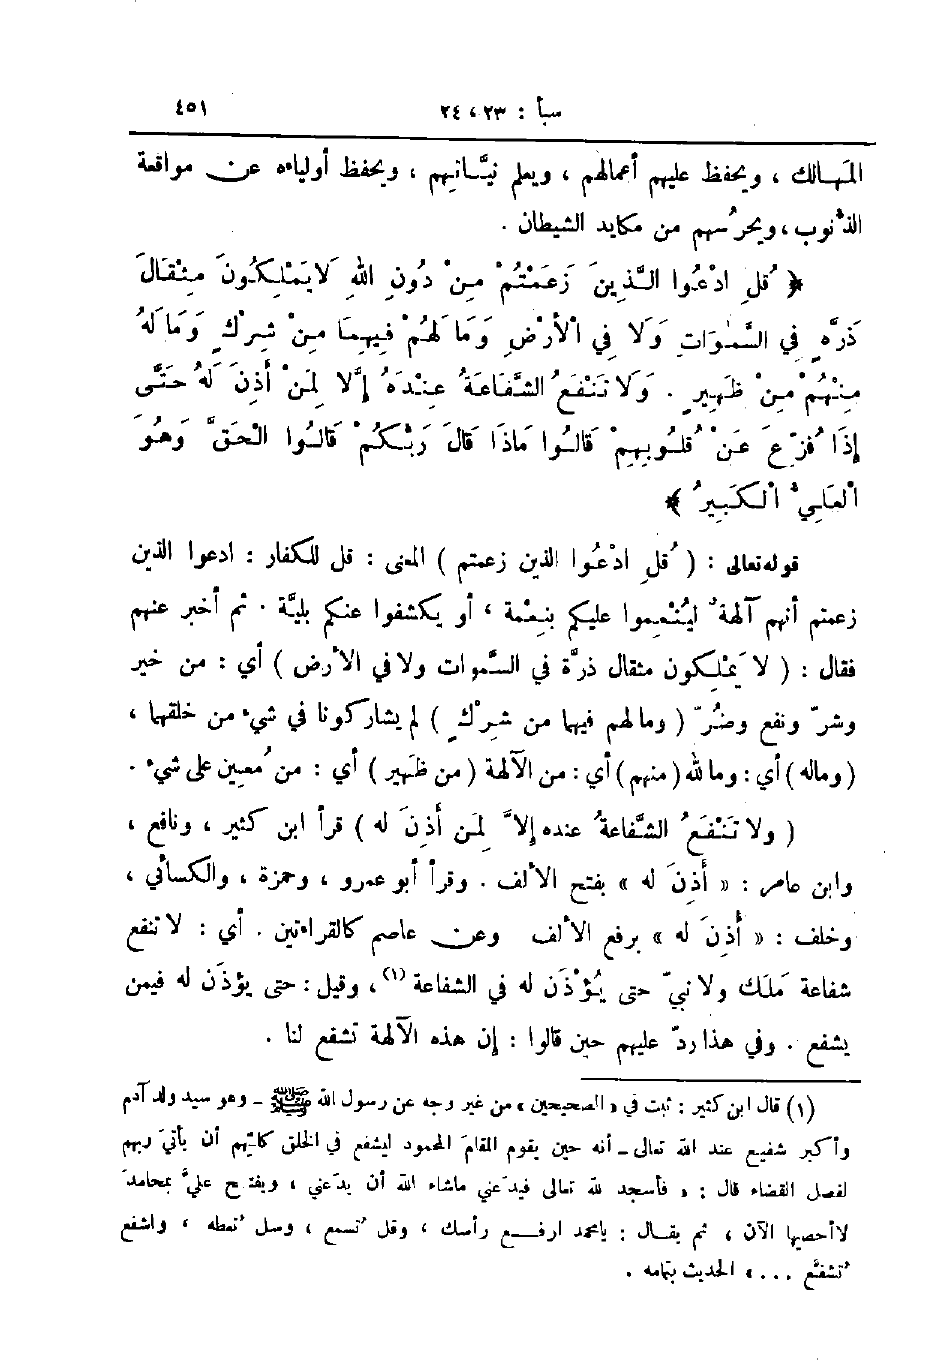 سبأ : ٢٣ ، ٢٤
٤٥١
المَهالك ، ويحفظ عليهم أعمالهم ، ويعلم نيَّاتهم ، ويحفظ أولياءه عن مواقعة
الذُّنوب ، ويحرُسهم من مكايد الشيطان .
﴿ قُلِ ادْعُوا الَّذِينَ زَعَمْتُمْ مِنْ دُونِ اللهِ لَا يَمْلِكُونَ مِثْقَالَ
ذَرَّةٍ فِي السَّمٰوَاتِ وَلَا فِي الْأَرْضِ وَمَا لَهُمْ فِيهِمَا مِنْ شِرْكٍ وَمَا لَهُ
مِنْهُمْ مِنْ ظَهِيرٍ . وَلَا تَنْفَعُ الشَّفَاعَةُ عِنْدَهُ إِلَّا لِمَنْ أَذِنَ لَهُ حَتَّى
إِذَا فُزِّعَ عَنْ قُلُوبِهِمْ قَالُوا مَاذَا قَالَ رَبُّكُمْ قَالُوا الْحَقَّ وَهُوَ
الْعَلِيُّ الْكَبِيرُ ﴾
قوله تعالى : ( قُلِ ادْعُوا الذين زعمتم ) المعنى : قل للكفار : ادعوا الذين
زعمتم أنهم آلهةٌ ليُنْعِموا عليكم بنِعْمة ، أو يكشفوا عنكم بليَّة . ثم أخبر عنهم
فقال : ( لا يَمْلِكون مثقال ذرَّة في السَّموات ولا في الأرض ) أي : من خير
وشرّ ونفع وضُرّ ( وما لهم فيهما من شِرْكٍ ) لم يشاركونا في شيء من خلقهما ،
( وماله ) أي : وما لله ( منهم ) أي : من الآلهة ( من ظَهير ) أي : من مُعين على شيء .
( ولا تَنْفَعُ الشَّفاعةُ عنده إلاَّ لِمَن أَذِنَ له ) قرأ ابن كثير ، ونافع ،
وابن عامر : « أَذِنَ له » بفتح الألف . وقرأ أبو عمرو ، وحمزة ، والكسائي ،
وخلف : « أُذِنَ له » برفع الألف وعن عاصم كالقراءتين . أي : لا تنفع
شفاعة مَلَك ولا نبيّ حتى يُؤْذَن له في الشفاعة (١) ، وقيل : حتى يؤذَن له فيمن
يشفع . وفي هذا ردّ عليهم حين قالوا : إن هذه الآلهة تشفع لنا .
(١) قال ابن كثير : ثبت في « الصحيحين » من غير وجه عن رسول الله ﷺ - وهو سيد ولد آدم
وأكبر شفيع عند الله تعالى - أنه حين يقوم المقامَ المحمود ليشفع في الخلق كلِّهم أن يأتيَ ربهم
لفصل القضاء قال : « فأسجد لله تعالى فيدَعني ماشاء الله أن يدَعني ، ويفتح عليَّ بمحامدَ
لاأحصيها الآن ، ثم يقال : يامحمد ارفع رأسك ، وقل تُسمع ، وسل تُعطه ، واشفع
تُشفَّع ... » الحديث بتمامه .